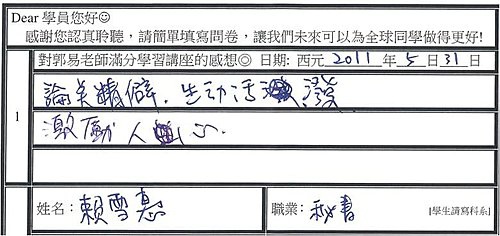 Dear 學員您好☺
感謝您認真聆聽，請簡單填寫問卷，讓我們未來可以為全球同學做得更好!
對郭易老師滿分學習講座的感想◎ 日期: 西元 2011 年 5 日 31 日
1
論美精僻．生動活潑
激勵人心．
姓名：賴雪惠
職業：秘書 [學生請寫科系]